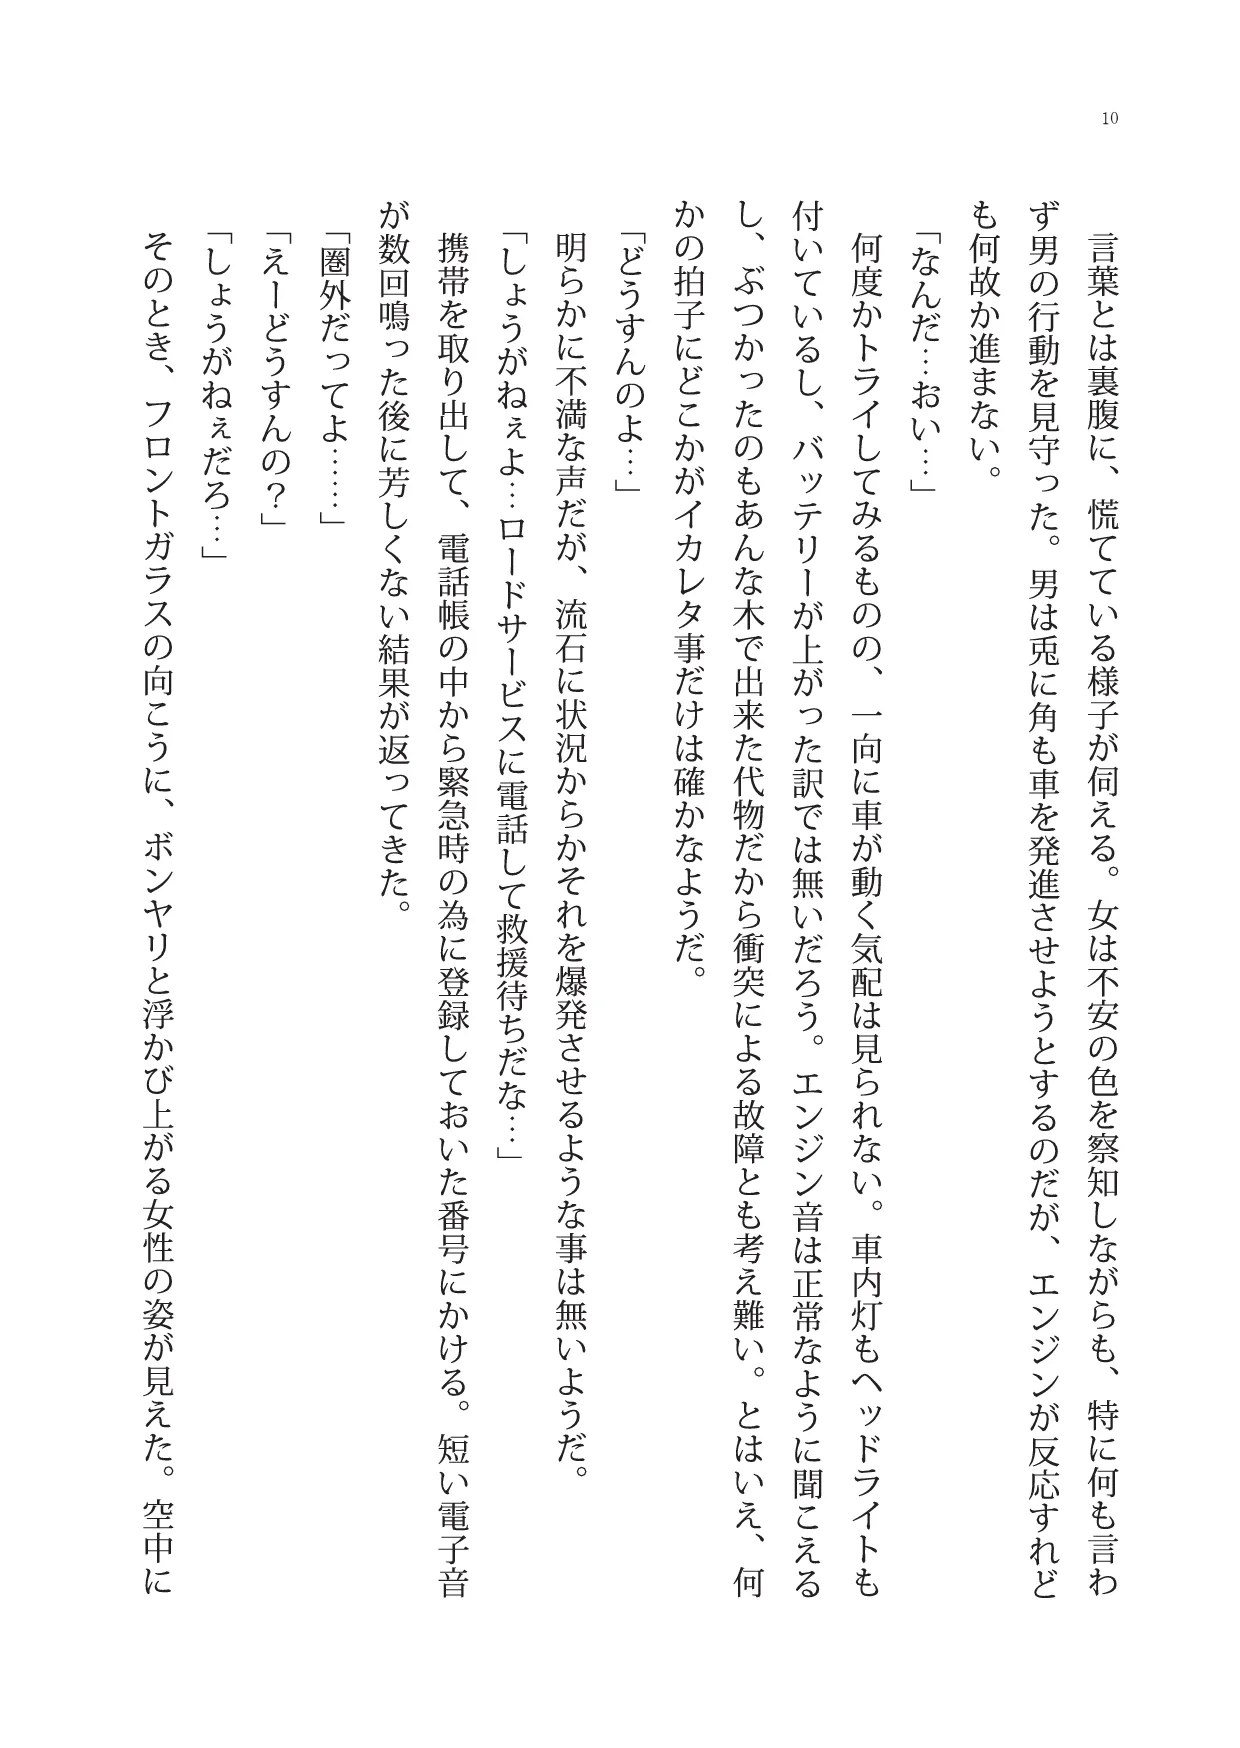 10
言葉とは裏腹に、慌てている様子が伺える。女は不安の色を察知しながらも、特に何も言わ
ず男の行動を見守った。男は兎に角も車を発進させようとするのだが、エンジンが反応すれど
も何故か進まない。
「なんだ…おい…」
何度かトライしてみるものの、一向に車が動く気配は見られない。車内灯もヘッドライトも
付いているし、バッテリーが上がった訳では無いだろう。エンジン音は正常なように聞こえる
し、ぶつかったのもあんな木で出来た代物だから衝突による故障とも考え難い。とはいえ、何
かの拍子にどこかがイカレタ事だけは確かなようだ。
「どうすんのよ…」
明らかに不満な声だが、流石に状況からかそれを爆発させるような事は無いようだ。
「しょうがねぇよ…ロードサービスに電話して救援待ちだな…」
携帯を取り出して、電話帳の中から緊急時の為に登録しておいた番号にかける。短い電子音
が数回鳴った後に芳しくない結果が返ってきた。
「圏外だってよ……」
「えーどうすんの？」
「しょうがねぇだろ…」
そのとき、フロントガラスの向こうに、ボンヤリと浮かび上がる女性の姿が見えた。空中に